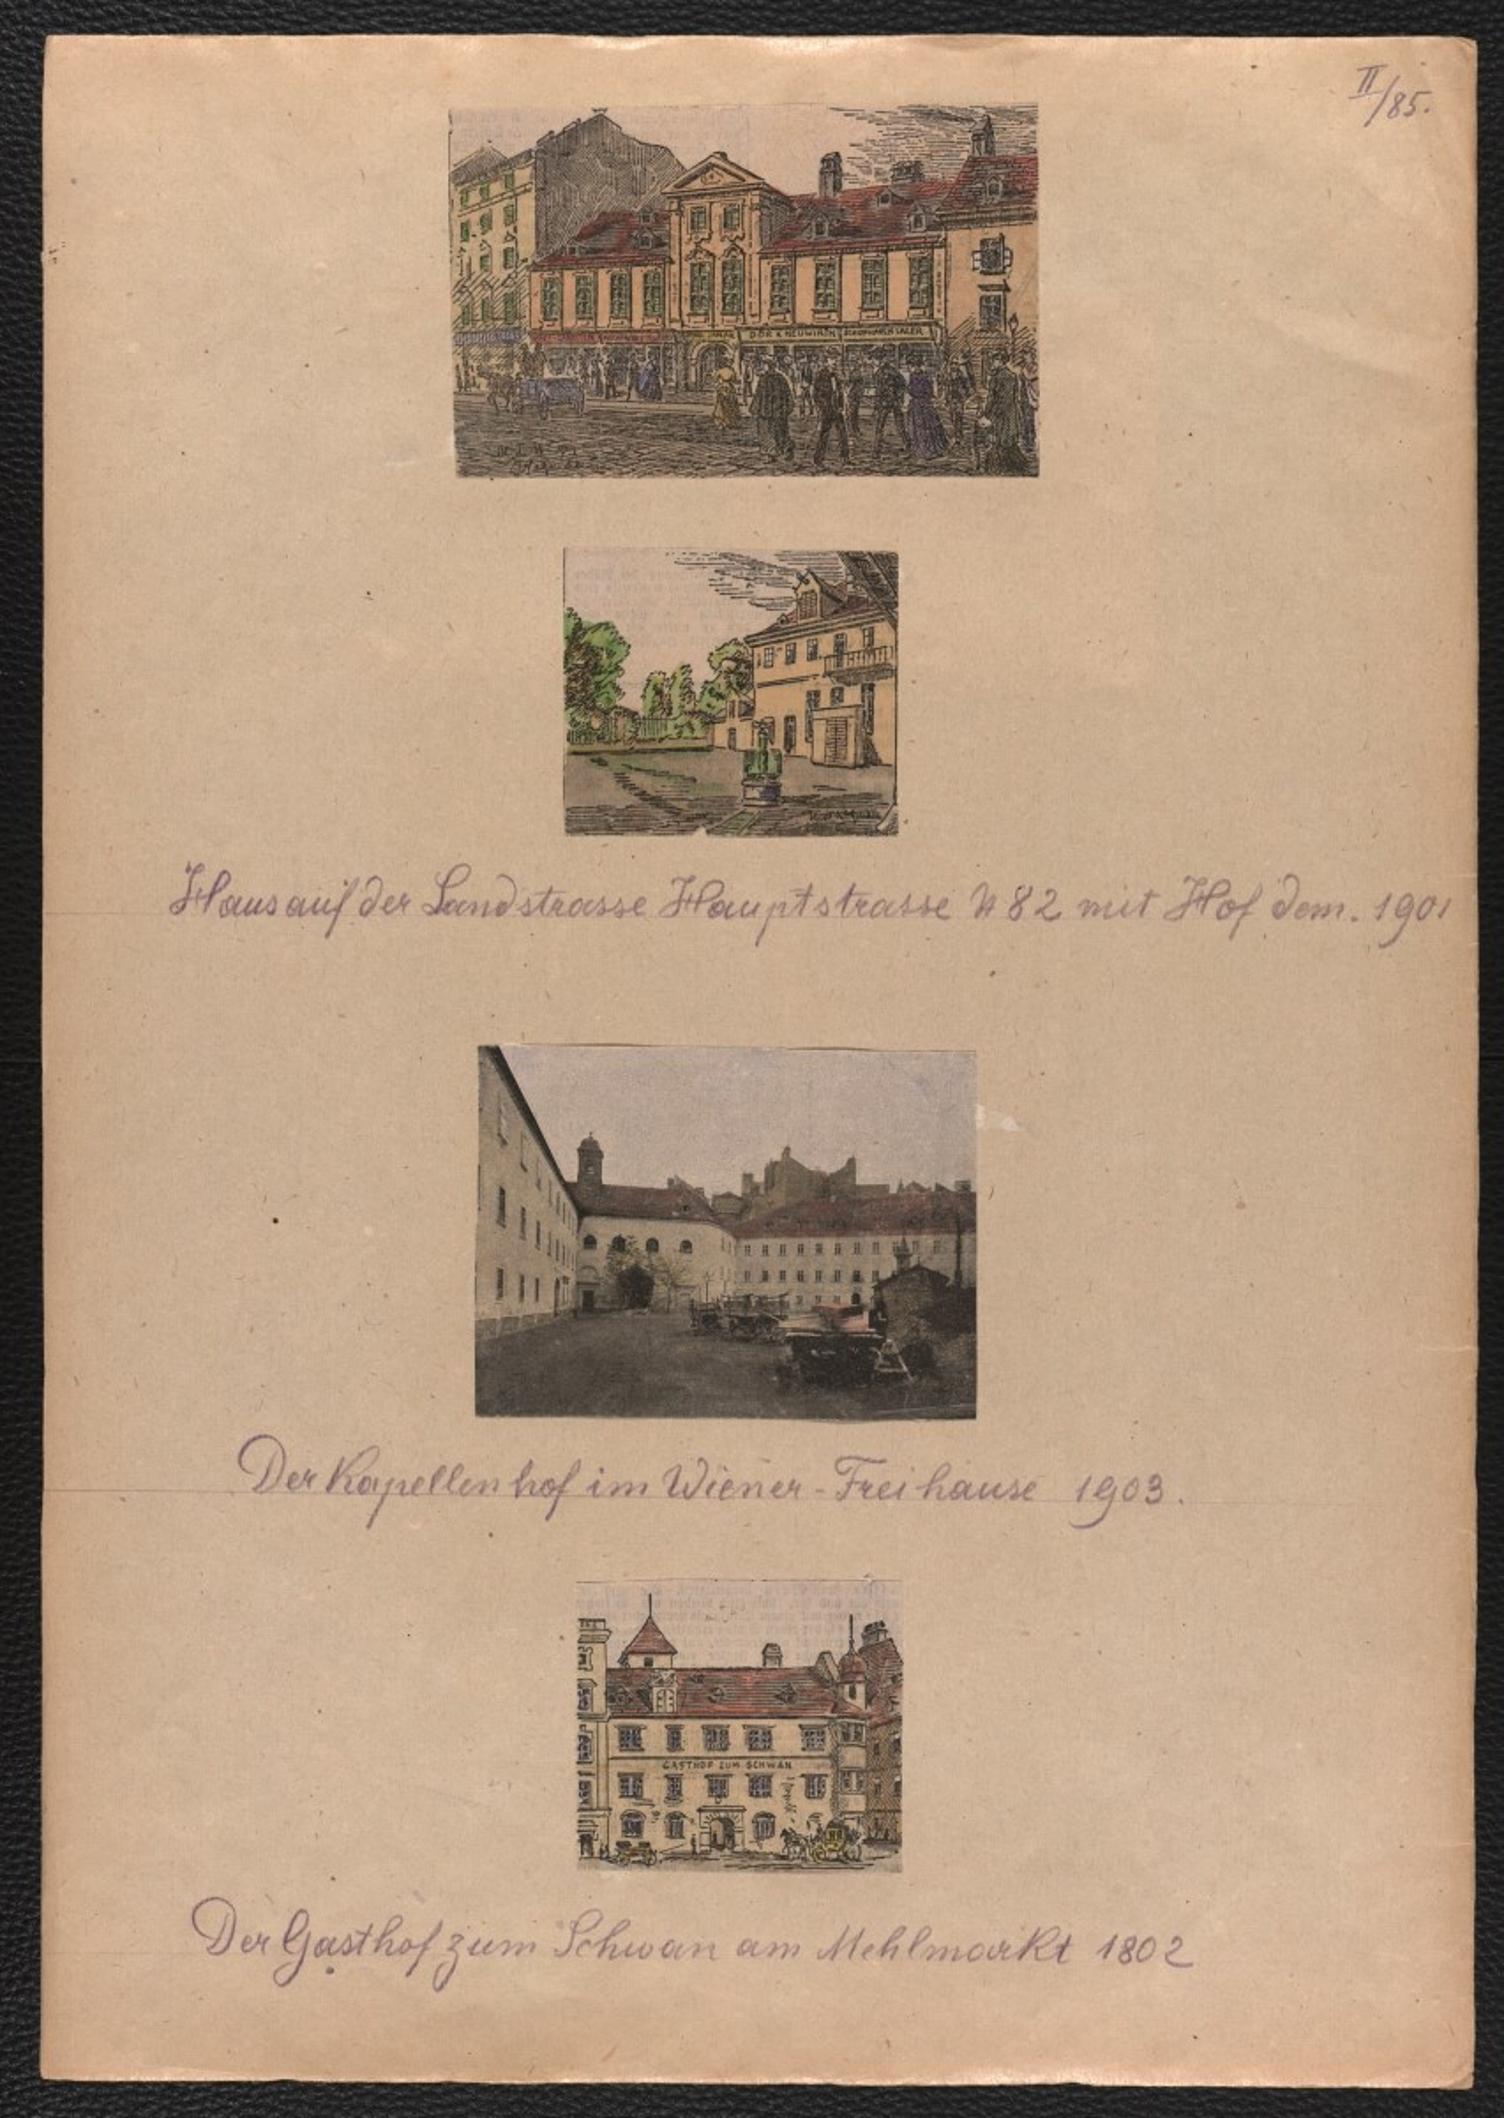 II/85.
DÖR & NEUWIRTH
Haus auf der Landstrasse Hauptstrasse N 82 mit Hof dem. 1901
Der Kapellenhof im Wiener-Freihause 1903.
GASTHOF ZUM SCHWAN
Der Gasthof zum Schwan am Mehlmarkt 1802